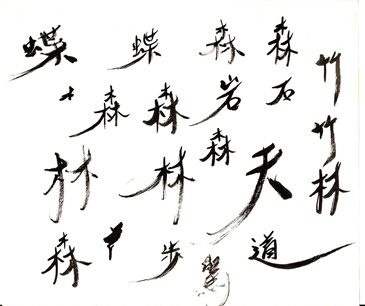 蝶 蝶 森 森 竹
森 森 岩 石 竹
林 林 森 天 林
森 歩 道